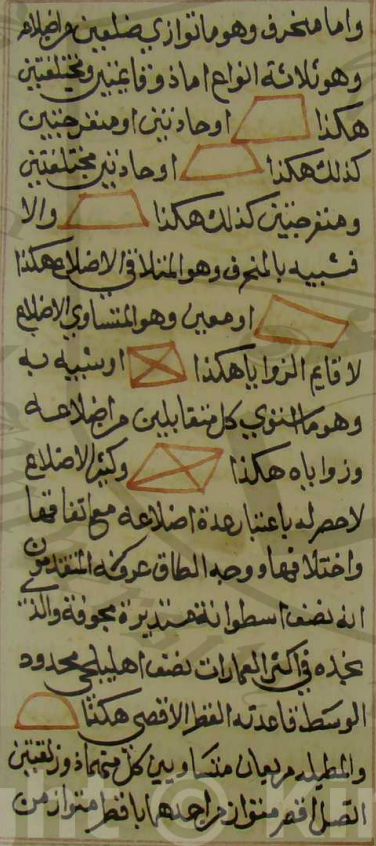 واما منحرف وهو ما توازي ضلعين من اضلاعه
وهو ثلاثة انواع اما ذو قاعمتين ومختلفتين
هكذا او حادتين او منفرجتين
كذلك هكذا او حادتين مختلفتين
ومنفرجتين كذلك هكذا والا
فشبيه بالمنحرف وهو المتلاقي الاضلاع هكذا
او معين وهو المتساوي الاضلاع
لا قايم الزوايا هكذا او شبيه به
وهو ما استوي كل متقابلين من اضلاعه
وزواياه هكذا وكثير الاضلاع
لا حصر له باعتبار عدة اضلاعه مع اتفاقها
واختلافها ووجه الطاق عرفه المتقدمون
انه نصف اسطوانة مستديرة مجوفة والذي
نجده في اكثر العمارات نصف اهليلجي محدود
الوسط قاعدته القطر الاقصي هكذا
والمطبله مربعان متساويين كل منهما ذو زنقتين
اتصل اقصر متواز من احدهما باقصر متواز من